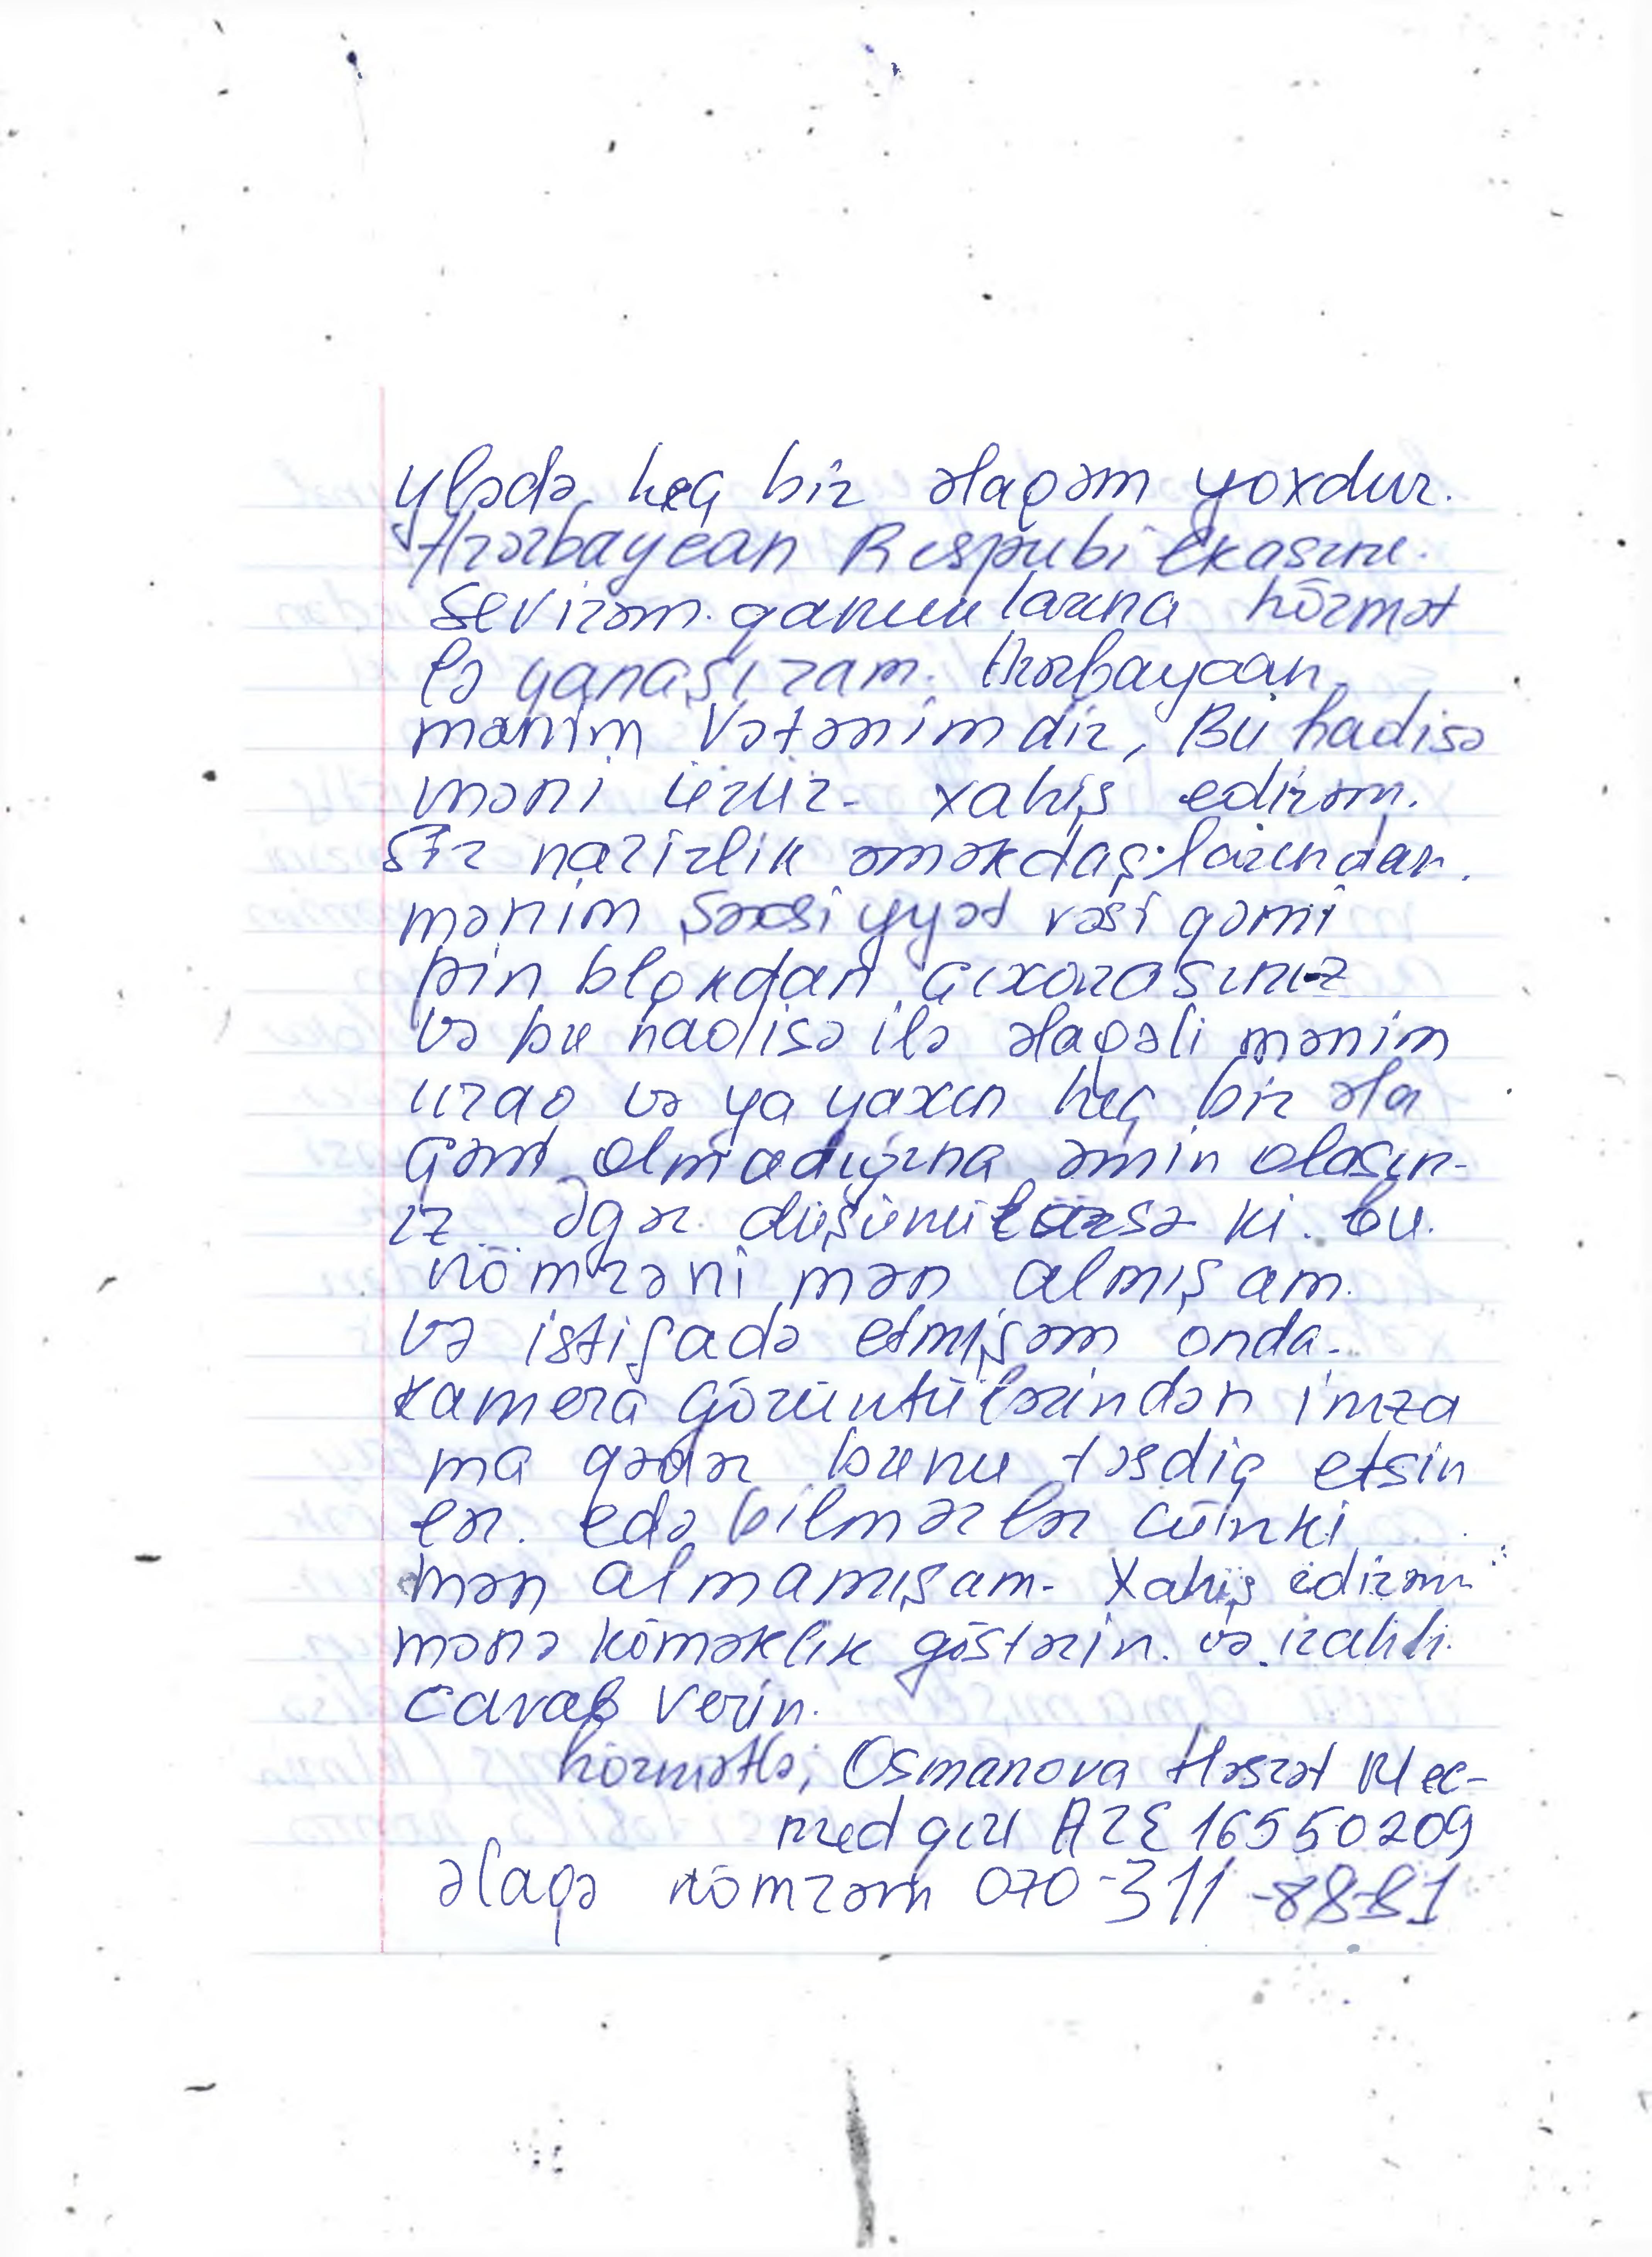 ylədə heç bir əlaqəm yoxdur.
Azərbaycan Respubilkasını.
Sevirəm. qanunlarına hörmət
lə yanaşıram. Azərbaycan
mənim Vətənimdir, Bu hadisə
məni üzür. xahiş edirəm.
Siz nazirlik əməkdaşlarından.
mənim Şəxsiyyət vəsiqəmi
bin blokdan çıxarasınız
və bu hadisə ilə əlaqəli mənim
uzaq və ya yaxın heç bir əla
qəm olmadığına əmin olasın-
ız. Əgər düşünülərsə ki. bu.
nömrəni mən almışam.
və istifadə etmişəm onda.
kamera görüntülərindən imza
ma qədər bunu təsdiq etsin
lər. edə bilmərlər çünki
mən almamışam. Xahiş edirəm
mənə köməklik göstərin. və. izahlı.
cavab verin.
hörmətlə; Osmanova Həsrət
qızı AZE 16550209
əlaqə nömrəm 070-311-88-81